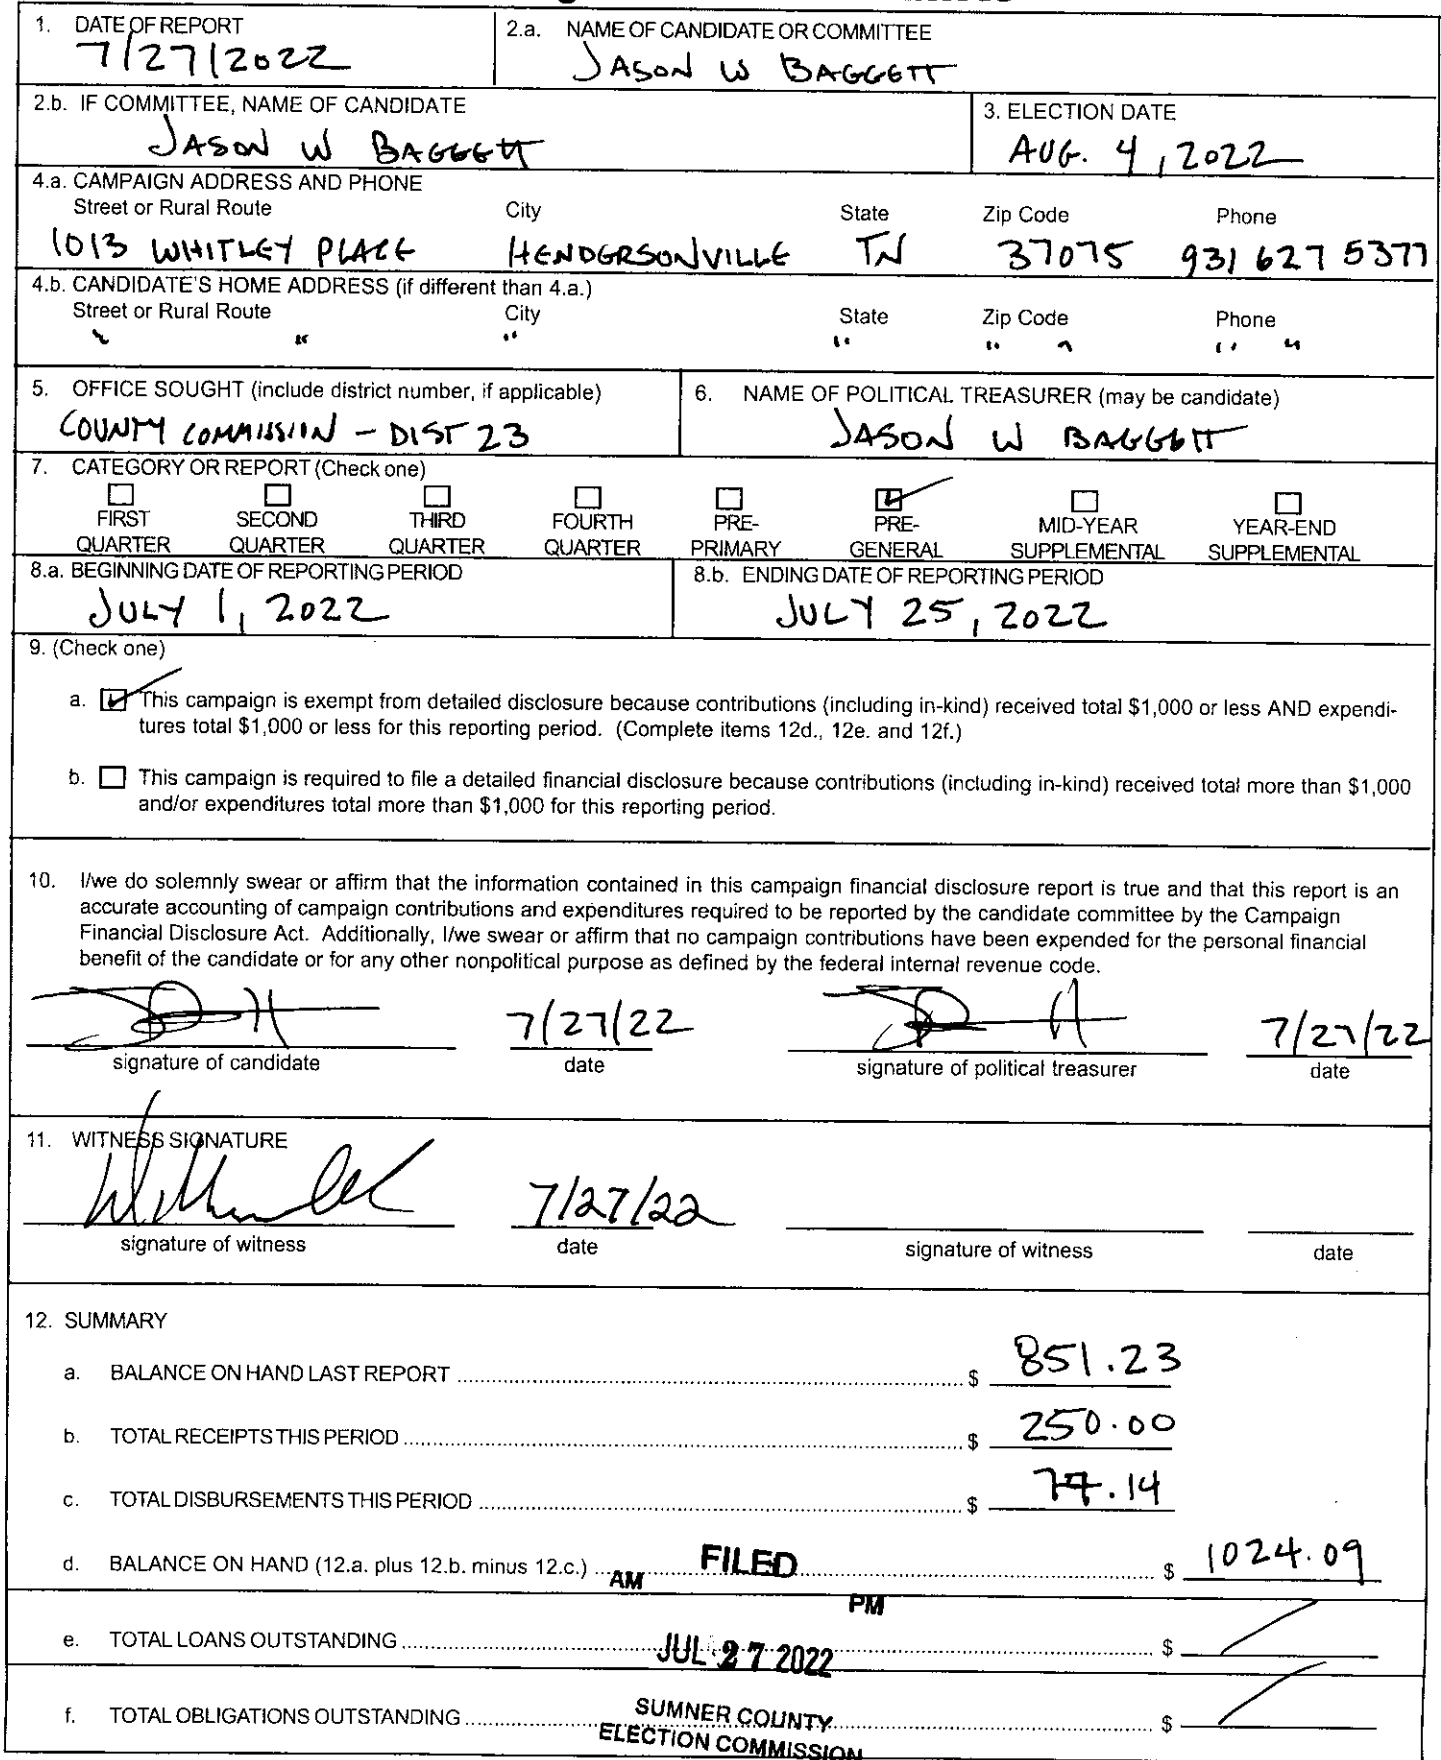 1. DATE OF REPORT
7/27/2022
2.a. NAME OF CANDIDATE OR COMMITTEE
JASON W BAGGETT
2.b. IF COMMITTEE, NAME OF CANDIDATE
JASON W BAGGETT
3. ELECTION DATE
AUG. 4, 2022
4.a. CAMPAIGN ADDRESS AND PHONE
Street or Rural Route City State Zip Code Phone
1013 WHITLEY PLACE HENDERSONVILLE TN 37075 931 627 5377
4.b. CANDIDATE'S HOME ADDRESS (if different than 4.a.)
Street or Rural Route City State Zip Code Phone
" " " " " " " "
5. OFFICE SOUGHT (include district number, if applicable)
COUNTY COMMISSION - DIST 23
6. NAME OF POLITICAL TREASURER (may be candidate)
JASON W BAGGETT
7. CATEGORY OR REPORT (Check one)
FIRST SECOND THIRD FOURTH PRE- PRE- MID-YEAR YEAR-END
QUARTER QUARTER QUARTER QUARTER PRIMARY GENERAL SUPPLEMENTAL SUPPLEMENTAL
8.a. BEGINNING DATE OF REPORTING PERIOD
JULY 1, 2022
8.b. ENDING DATE OF REPORTING PERIOD
JULY 25, 2022
9. (Check one)
a. This campaign is exempt from detailed disclosure because contributions (including in-kind) received total $1,000 or less AND expendi-
tures total $1,000 or less for this reporting period. (Complete items 12d., 12e. and 12f.)
b. This campaign is required to file a detailed financial disclosure because contributions (including in-kind) received total more than $1,000
and/or expenditures total more than $1,000 for this reporting period.
10. I/we do solemnly swear or affirm that the information contained in this campaign financial disclosure report is true and that this report is an
accurate accounting of campaign contributions and expenditures required to be reported by the candidate committee by the Campaign
Financial Disclosure Act. Additionally, I/we swear or affirm that no campaign contributions have been expended for the personal financial
benefit of the candidate or for any other nonpolitical purpose as defined by the federal internal revenue code.
7/27/22 7/27/22
signature of candidate date signature of political treasurer date
11. WITNESS SIGNATURE
7/27/22
signature of witness date signature of witness date
12. SUMMARY
a. BALANCE ON HAND LAST REPORT $ 851.23
b. TOTAL RECEIPTS THIS PERIOD $ 250.00
c. TOTAL DISBURSEMENTS THIS PERIOD $ 77.14
d. BALANCE ON HAND (12.a. plus 12.b. minus 12.c.) $ 1024.09
FILED
AM PM
e. TOTAL LOANS OUTSTANDING $
JUL 27 2022
f. TOTAL OBLIGATIONS OUTSTANDING $
SUMNER COUNTY
ELECTION COMMISSION